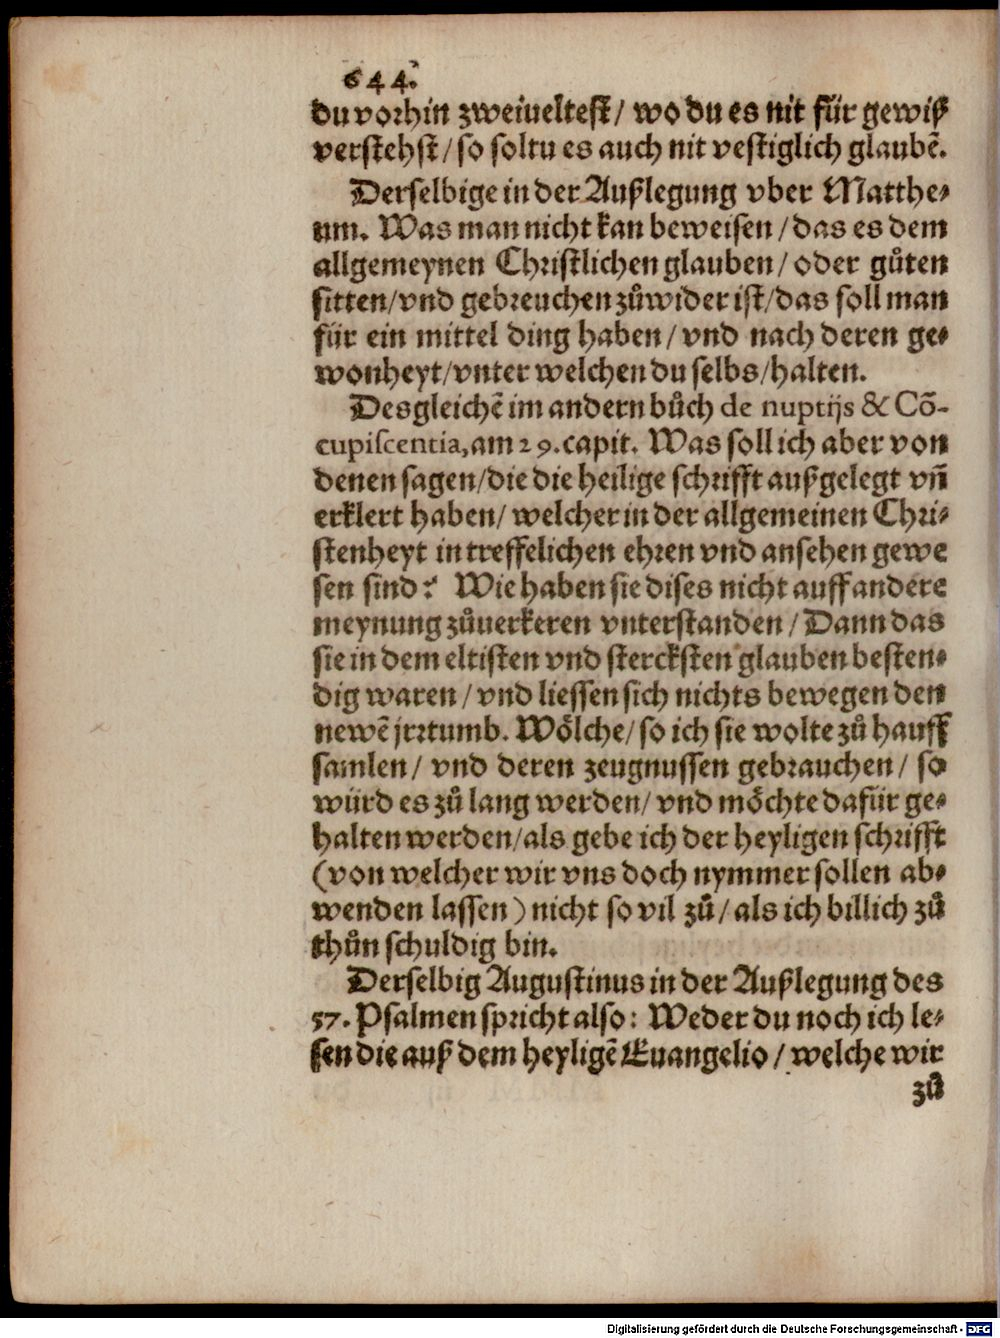 644.
du vorhin zweiueltest/ wo du es nit für gewiß
verstehst/ so soltu es auch nit vestiglich glaubē.
Derselbige in der Außlegung vber Matthe⸗
um. Was man nicht kan beweisen/ das es dem
allgemeynen Christlichen glauben/ oder gůten
sitten/ vnd gebreuchen zůwider ist/ das soll man
für ein mittel ding haben/ vnd nach deren ge⸗
wonheyt/ vnter welchen du selbs/ halten.
Desgleichē im andern bůch de nuptijs & Cō-
cupiscentia, am 29. capit. Was soll ich aber von
denen sagen/ die die heilige schrifft außgelegt vñ
erklert haben/ welcher in der allgemeinen Chri⸗
stenheyt in treffelichen ehren vnd ansehen gewe
sen sind? Wie haben sie dises nicht auff andere
meynung zůuerkeren vnterstanden/ Dann das
sie in dem eltisten vnd stercksten glauben besten⸗
dig waren/ vnd liessen sich nichts bewegen den
newē jrrtumb. Wölche/ so ich sie wolte zů hauff
samlen/ vnd deren zeugnussen gebrauchen/ so
würd es zů lang werden/ vnd möchte dafür ge⸗
halten werden/ als gebe ich der heyligen schrifft
(von welcher wir vns doch nymmer sollen ab⸗
wenden lassen) nicht so vil zů/ als ich billich zů
thůn schuldig bin.
Derselbig Augustinus in der Außlegung des
57. Psalmen spricht also: Weder du noch ich le⸗
sen die auß dem heyligē Euangelio/ welche wir
zů
Digitalisierung gefördert durch die Deutsche Forschungsgemeinschaft - DFG